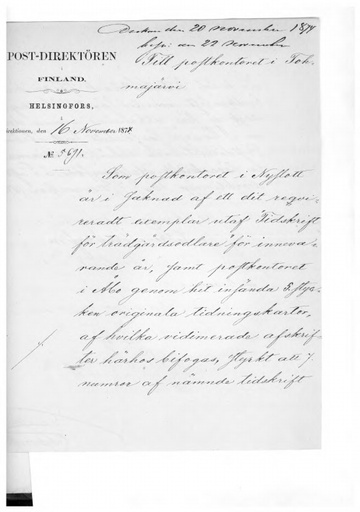 den 20 November 1874
den 22 November
POST-DIREKTÖREN
I
FINLAND.
HELSINGFORS,
den 16 November 1874
№ 5691.
Till postkontoret i Toh-
majärvi
Som postkontoret i Nyslott
är i saknad af ett dit reqvi-
reradt exemplar utaf Tidskrift
för trädgårdsodlare för innova-
rande år, samt postkontoret
i Åbo genom hit insända 2 styc-
ken originala tidningskartor,
af hvilka vidimerade afskrif-
ter härhos bifogas, styrkt att 7
numror af nämnde tidskrift